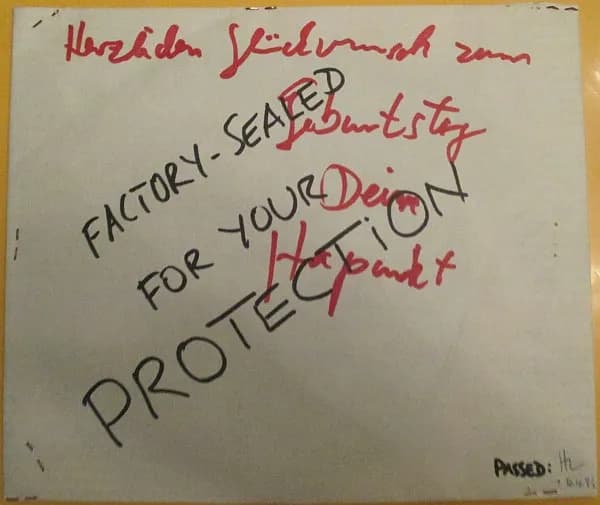 Herzlichen Glückwunsch zum
Geburtstag
Dein
Hapunkt
FACTORY-SEALED
FOR YOUR
PROTECTION
PASSED: